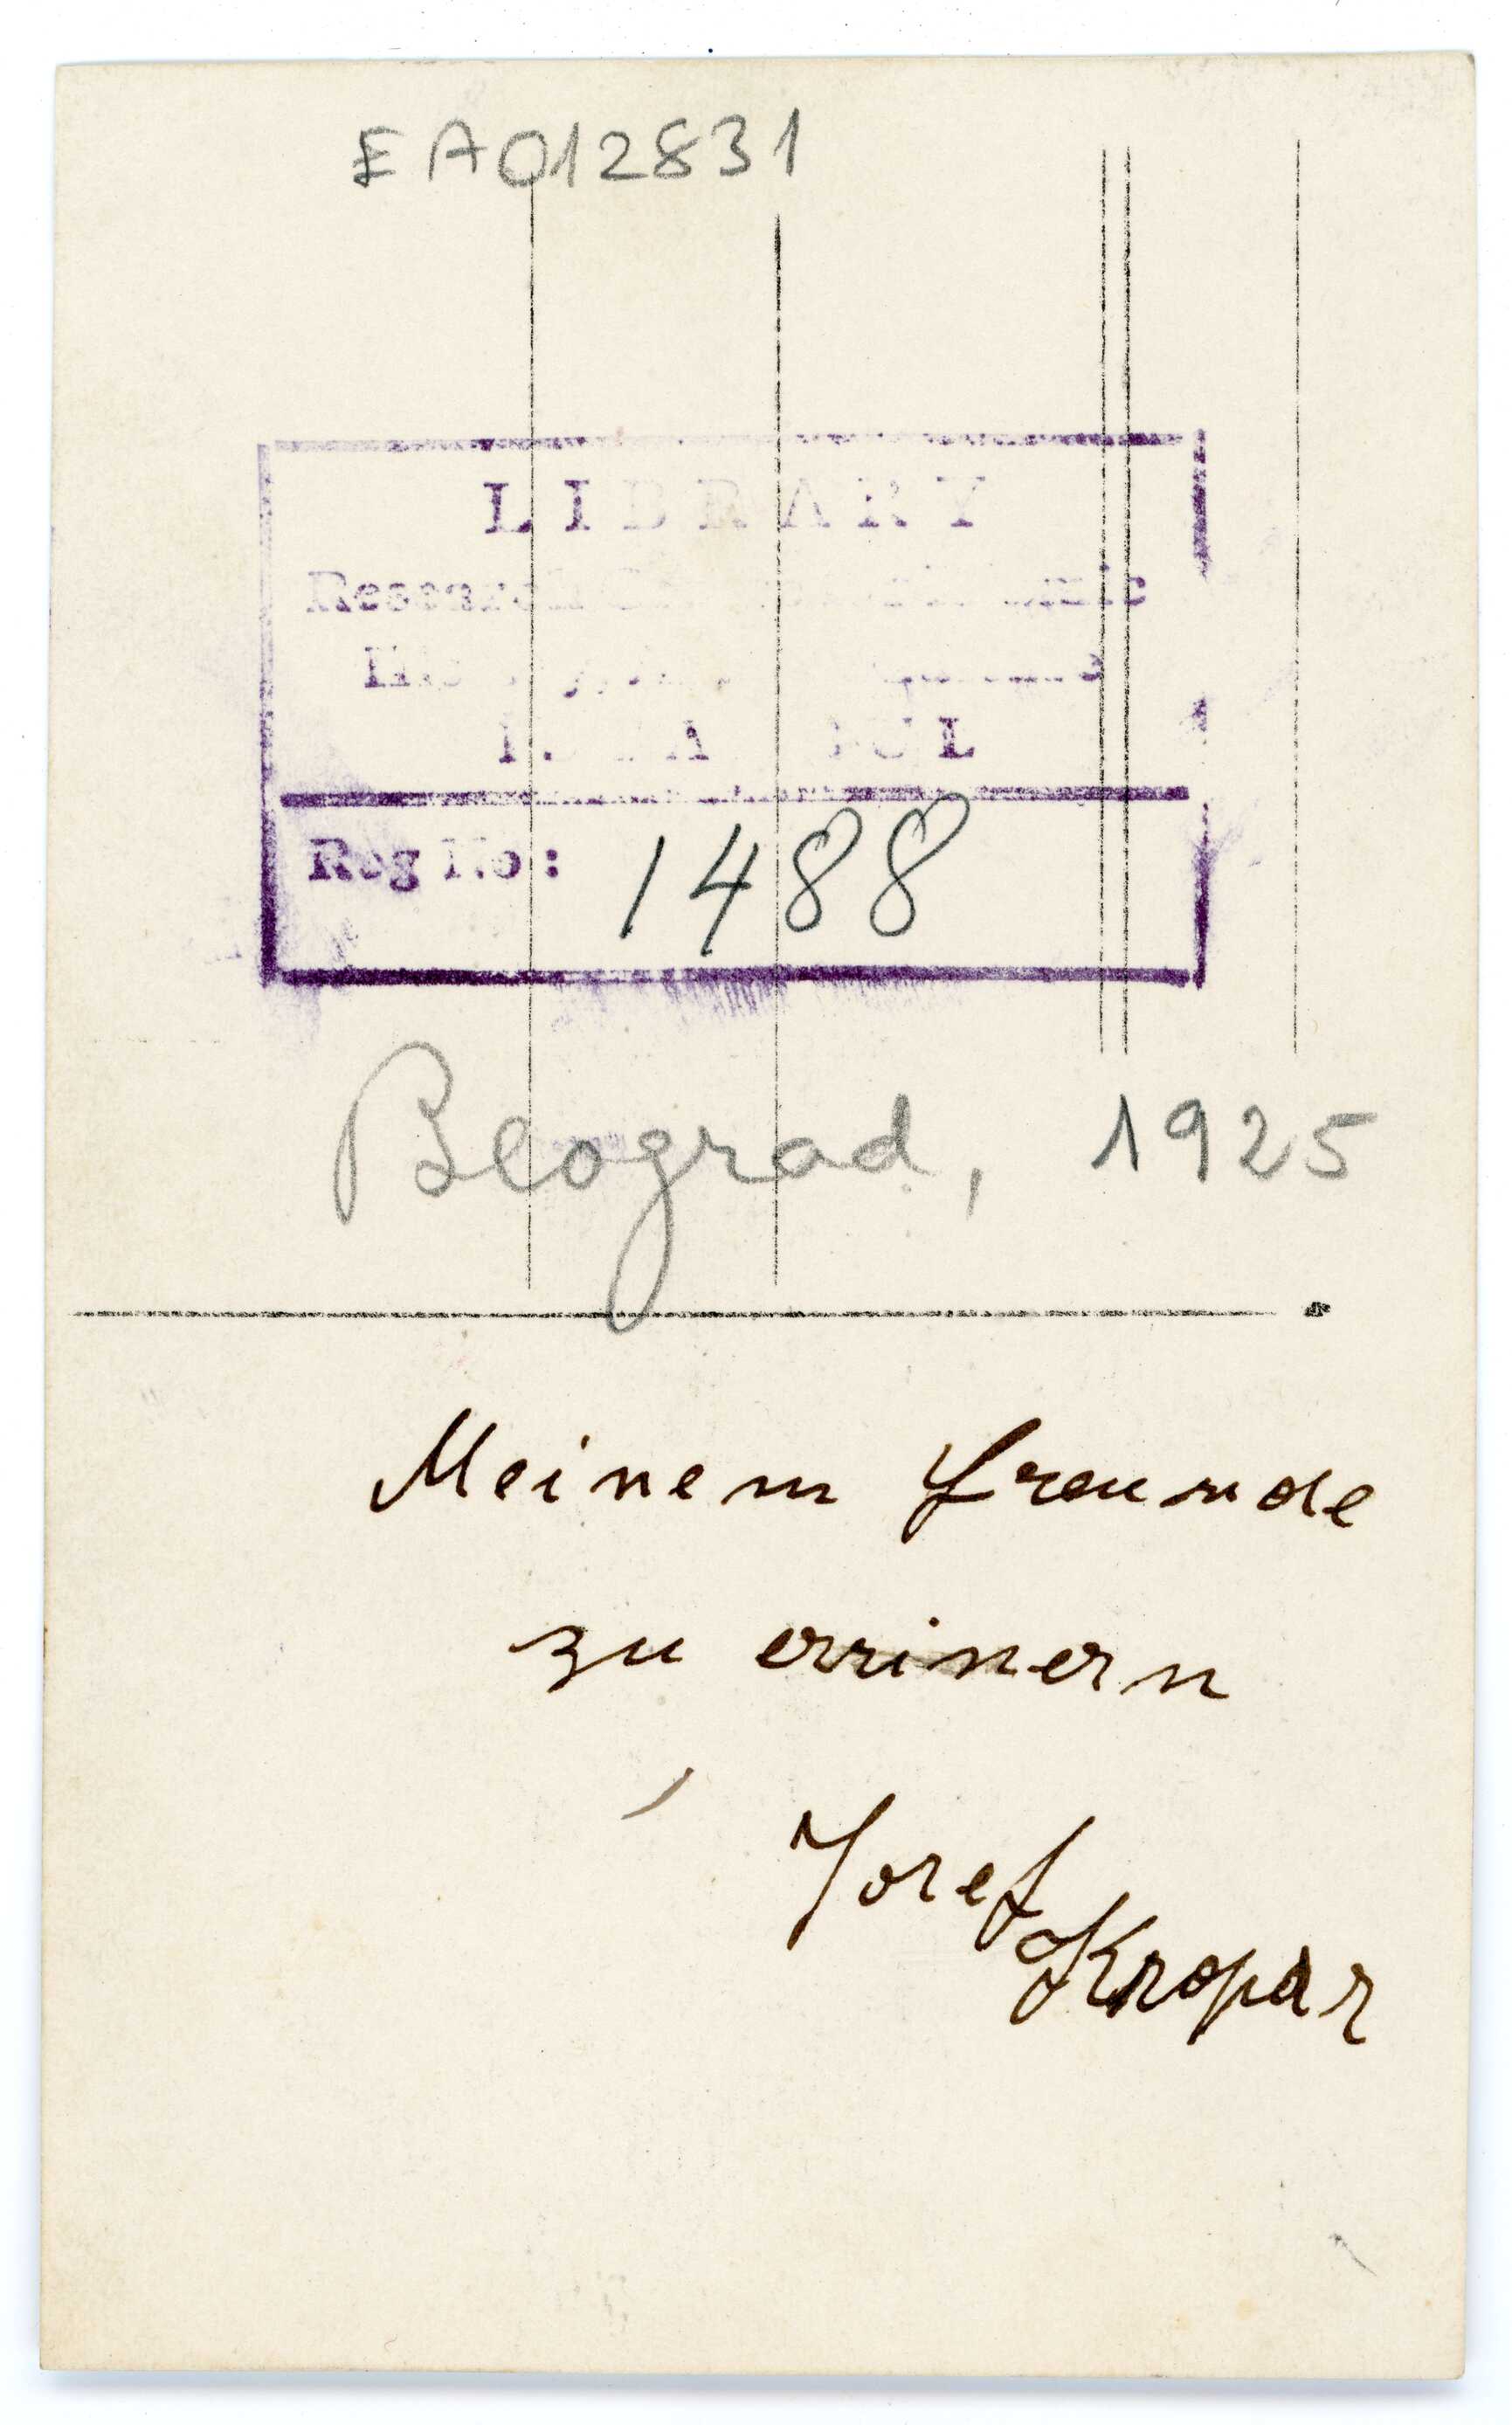 EA012831
LIBRARY
Research
Reg No: 1488
Beograd, 1925
Meinem Freunde
zu errinern
Josef
Kropar